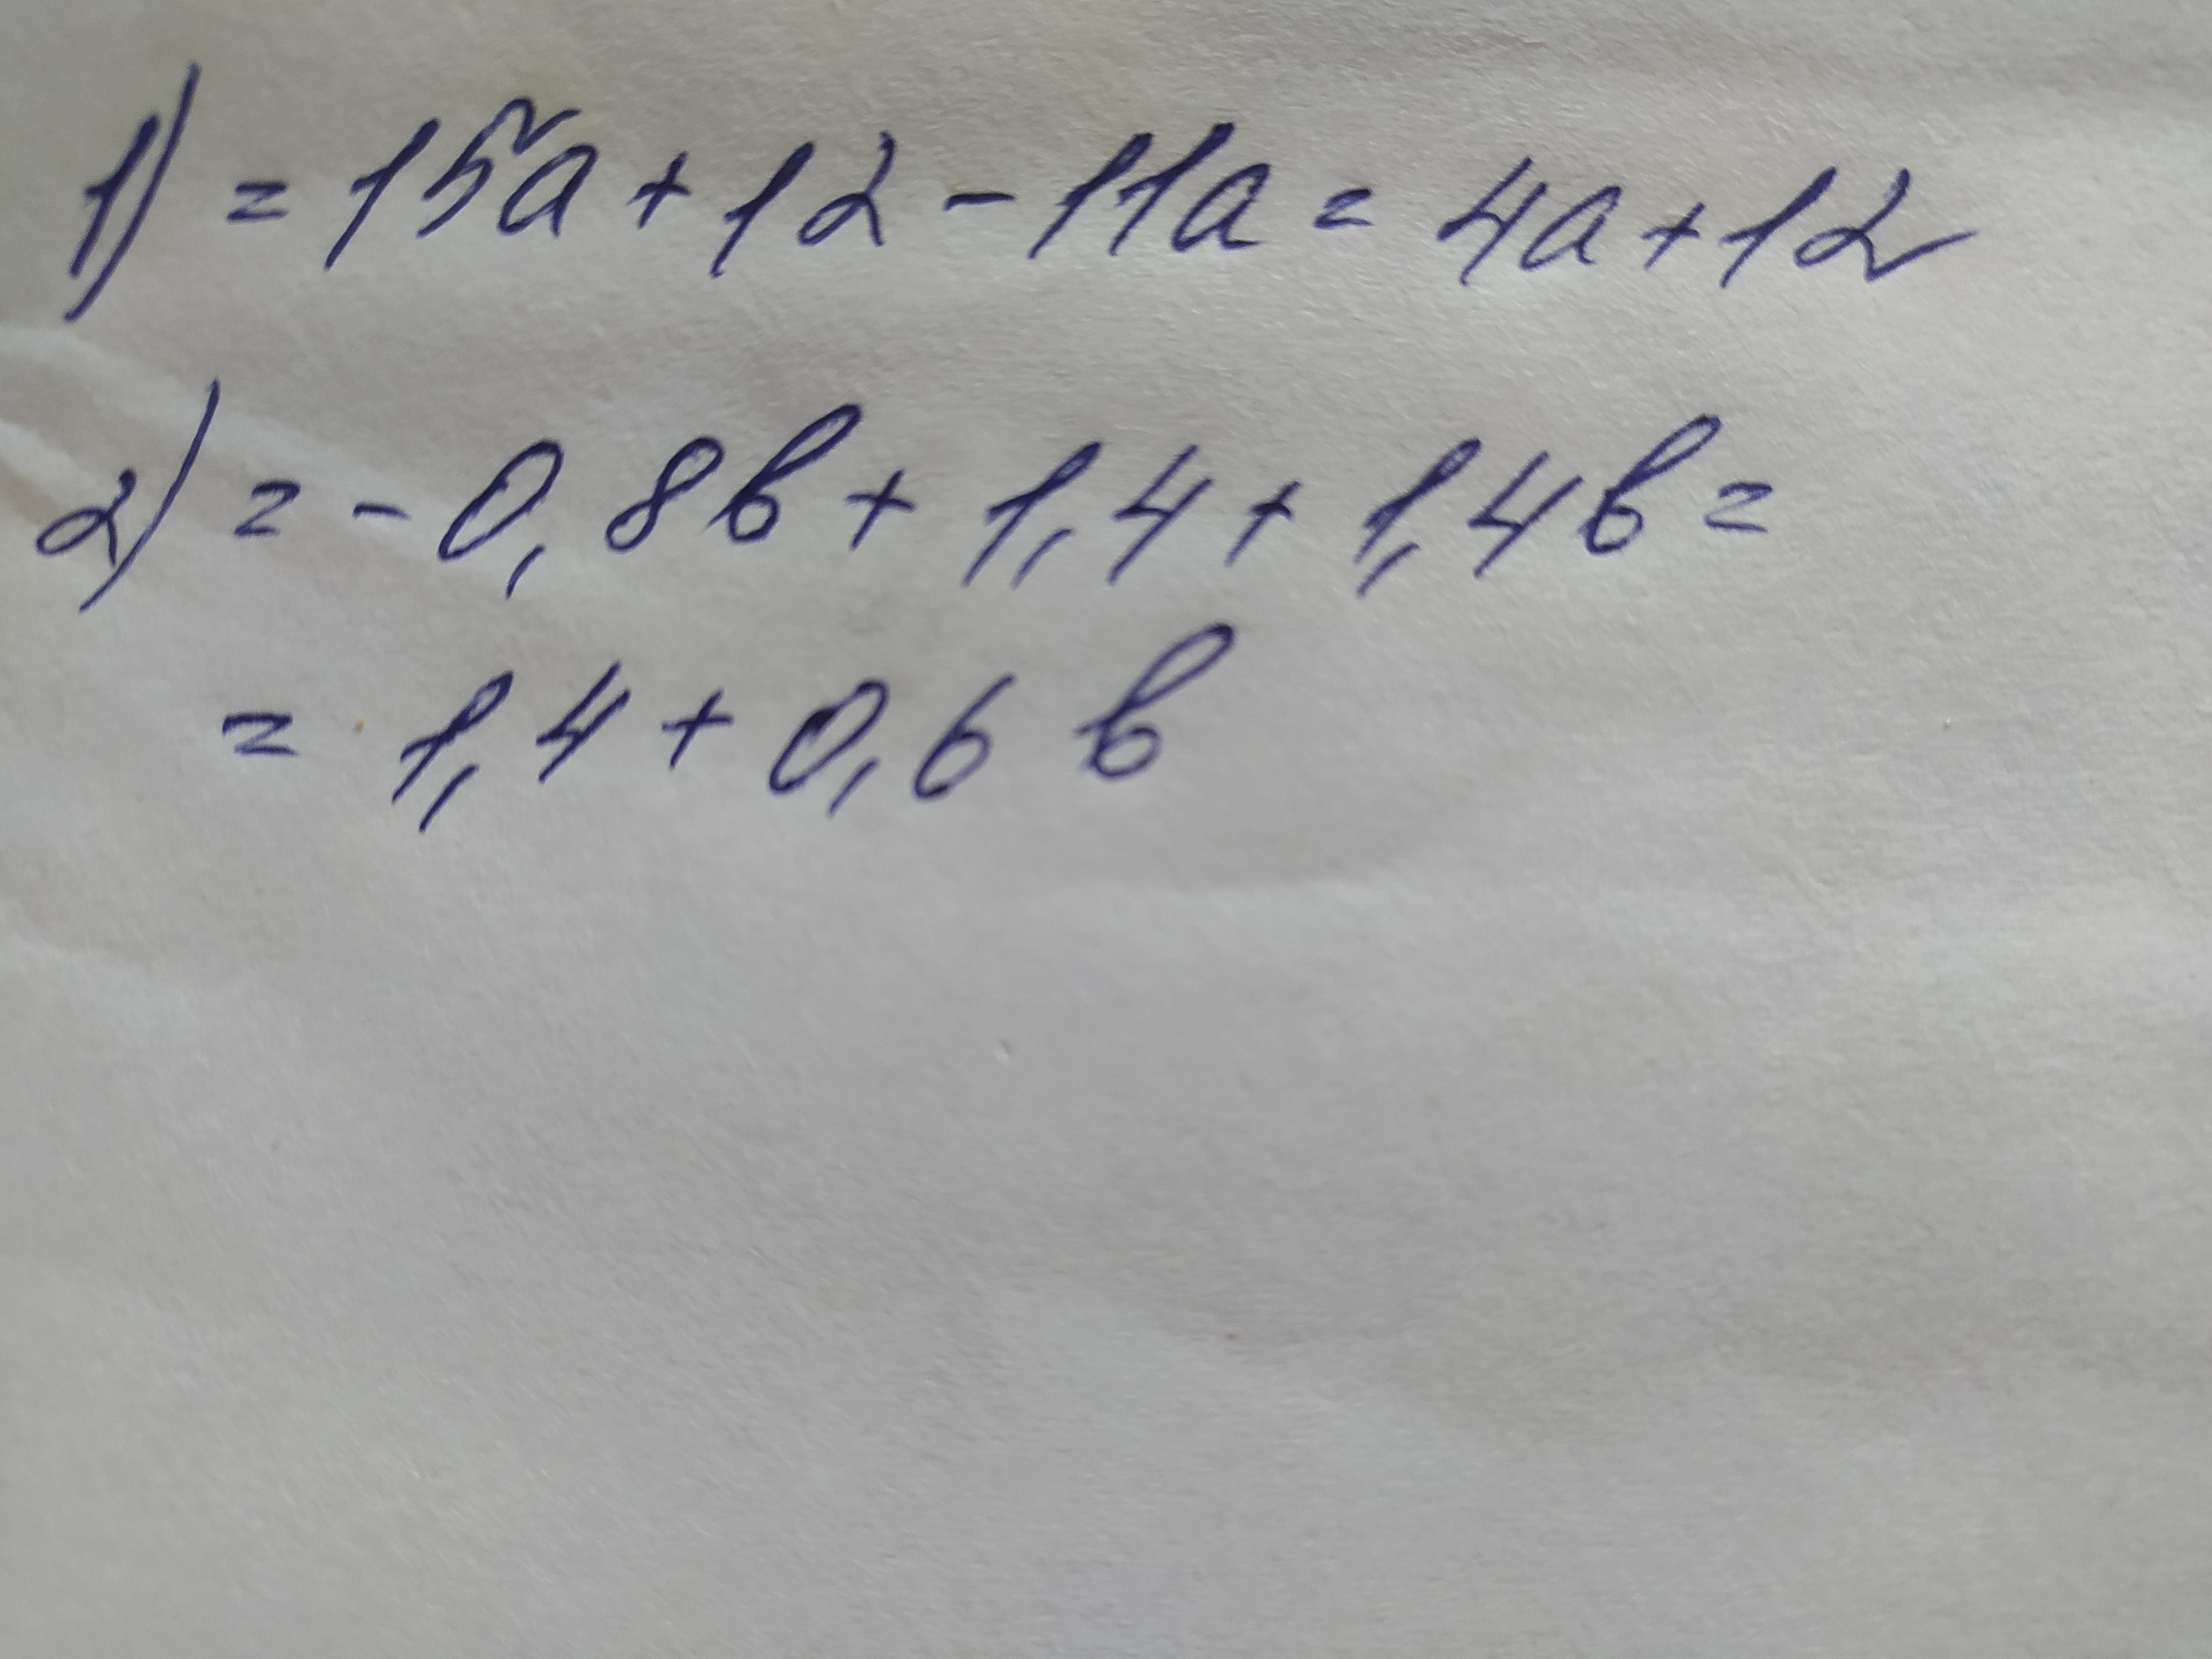 1) = 15a + 12 - 11a = 4a + 12
2) = - 0,8b + 1,4 + 1,4b =
= 1,4 + 0,6 b